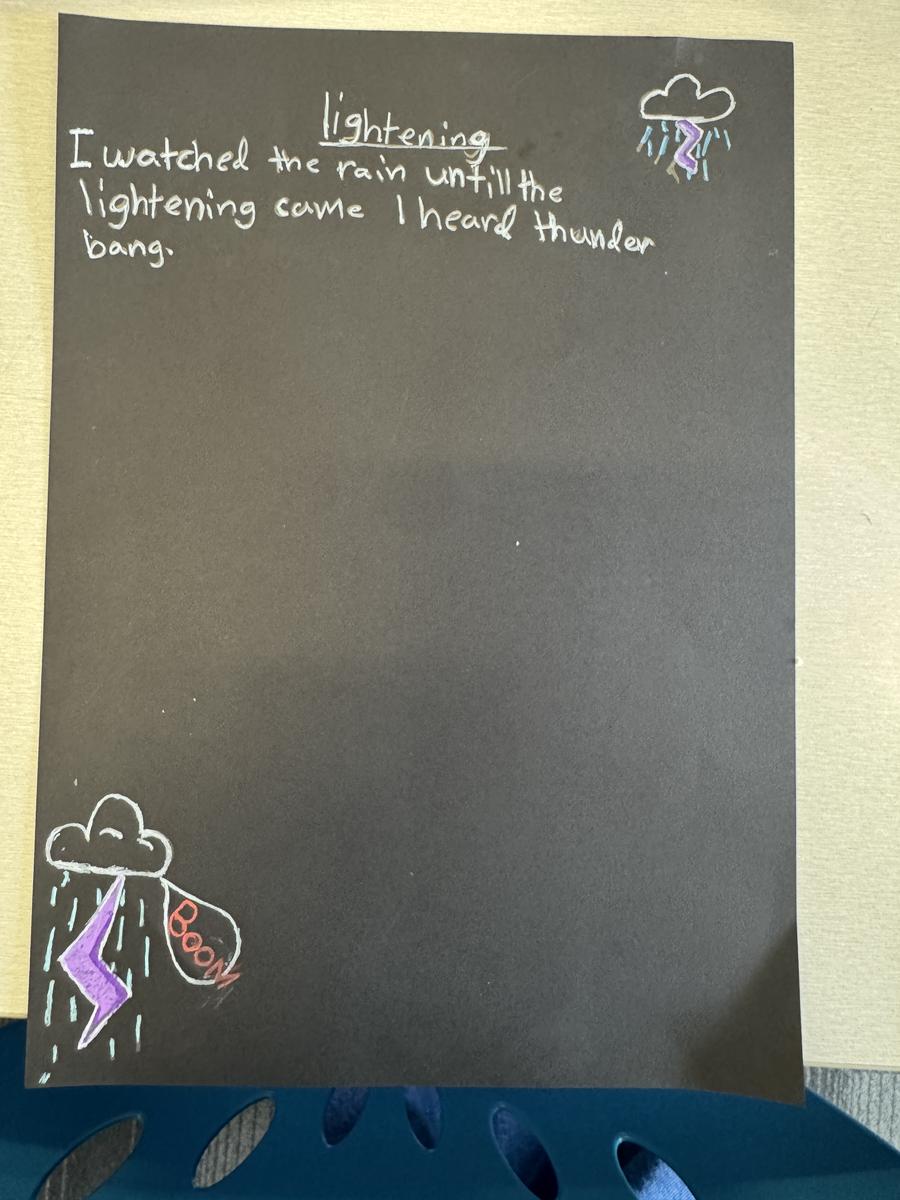 lightening
I watched the rain untill the
lightening came I heard thunder
bang.
BOOM